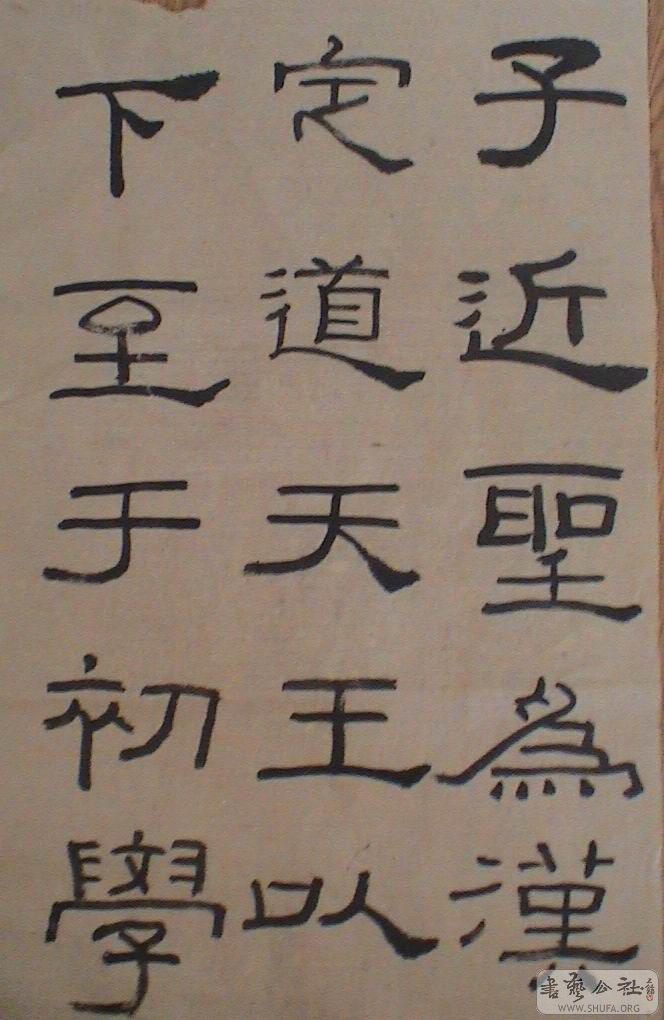 子近聖為漢
定道天王以
下至于初學
書藝公社
WWW.SHUFA.ORG